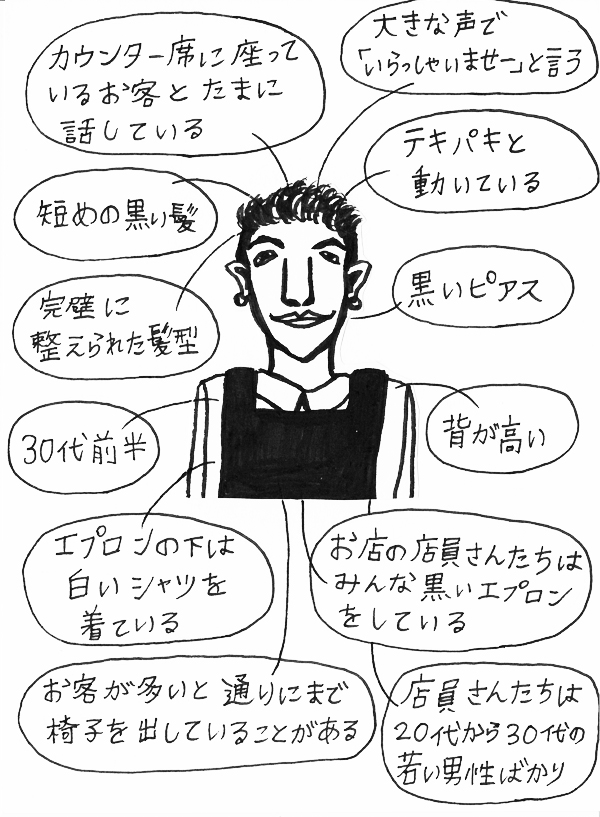 カウンター席に座って
いるお客とたまに
話している
大きな声で
「いらっしゃいませー」と言う
短めの黒い髪
テキパキと
動いている
完璧に
整えられた髪型
黒いピアス
30代前半
背が高い
エプロンの下は
白いシャツを
着ている
お店の店員さんたちは
みんな黒いエプロン
をしている
お客が多いと通りにまで
椅子を出していることがある
店員さんたちは
20代から30代の
若い男性ばかり